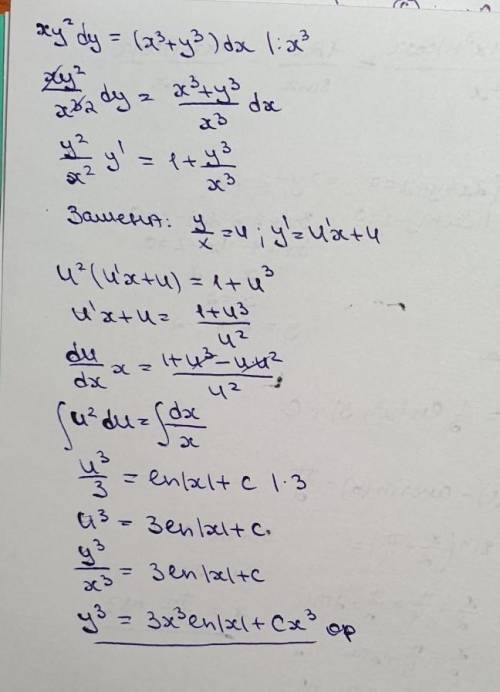 xy² dy = (x³+y³) dx |:x³
xy²/x³2 dy = (x³+y³)/x³ dx
y²/x² y' = 1 + y³/x³
Замена: y/x = u; y' = u'x+u
u²(u'x+u) = 1+u³
u'x+u = (1+u³)/u²
du/dx x = (1+u³-u·u²)/u²;
∫u² du = ∫dx/x
u³/3 = ln|x| + c |·3
u³ = 3ln|x| + c.
y³/x³ = 3ln|x|+c
y³ = 3x³ln|x| + Cx³ ор